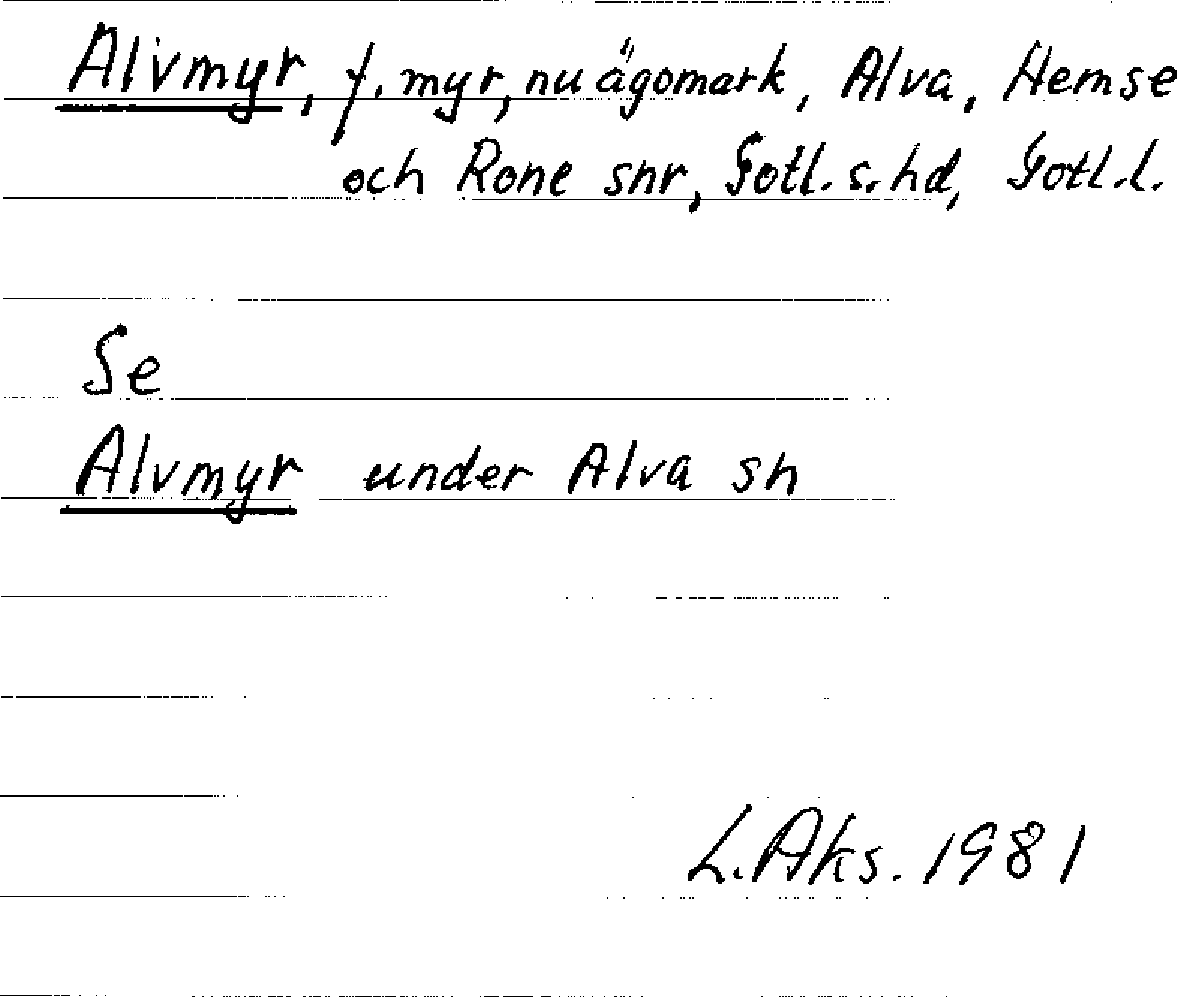 Alvmyr, f. myr, nu ägomark, Alva, Hemse
och Rone snr, Gotl. s. hd, Gotl. l.
Se
Alvmyr under Alva sn
L. Aks. 1981